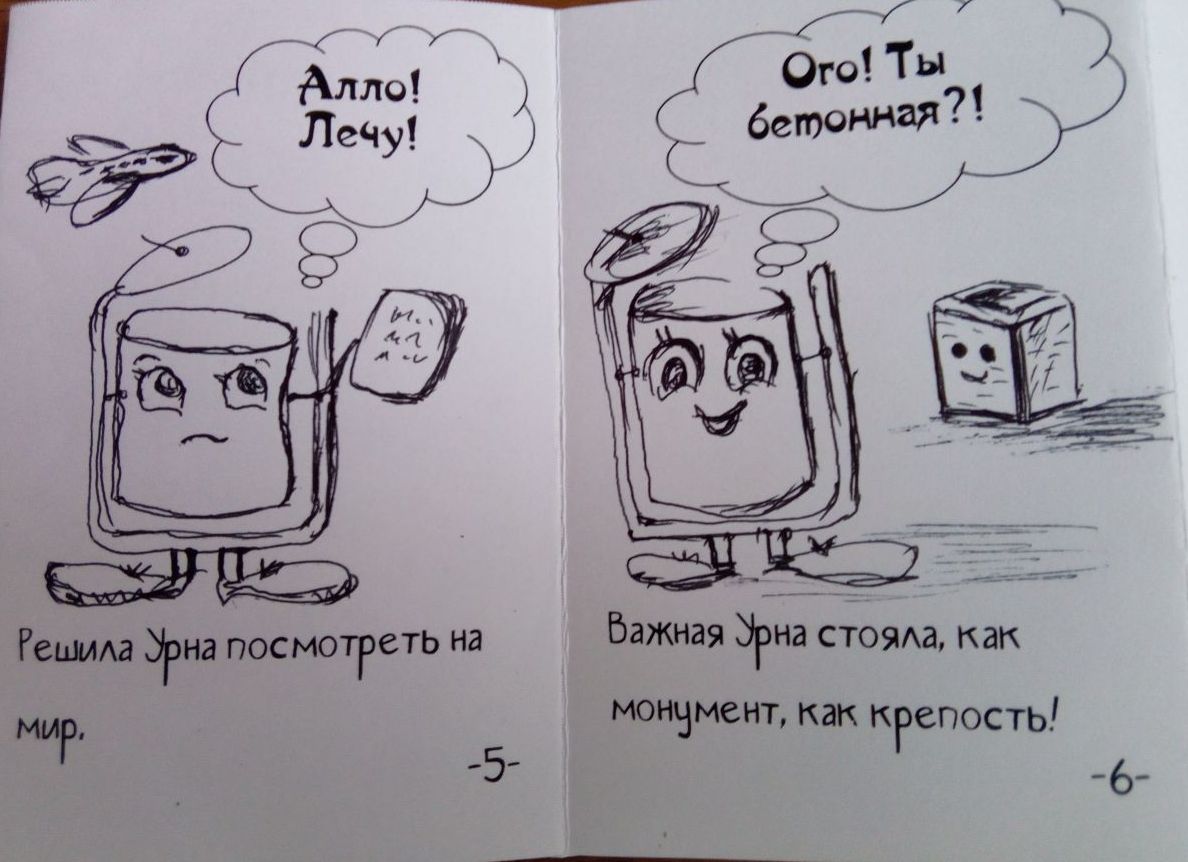 Алло!
Лечу!
Решила Урна посмотреть на
мир.
-5-
Ого! Ты
бетонная?!
Важная Урна стояла, как
монумент, как крепость!
-6-